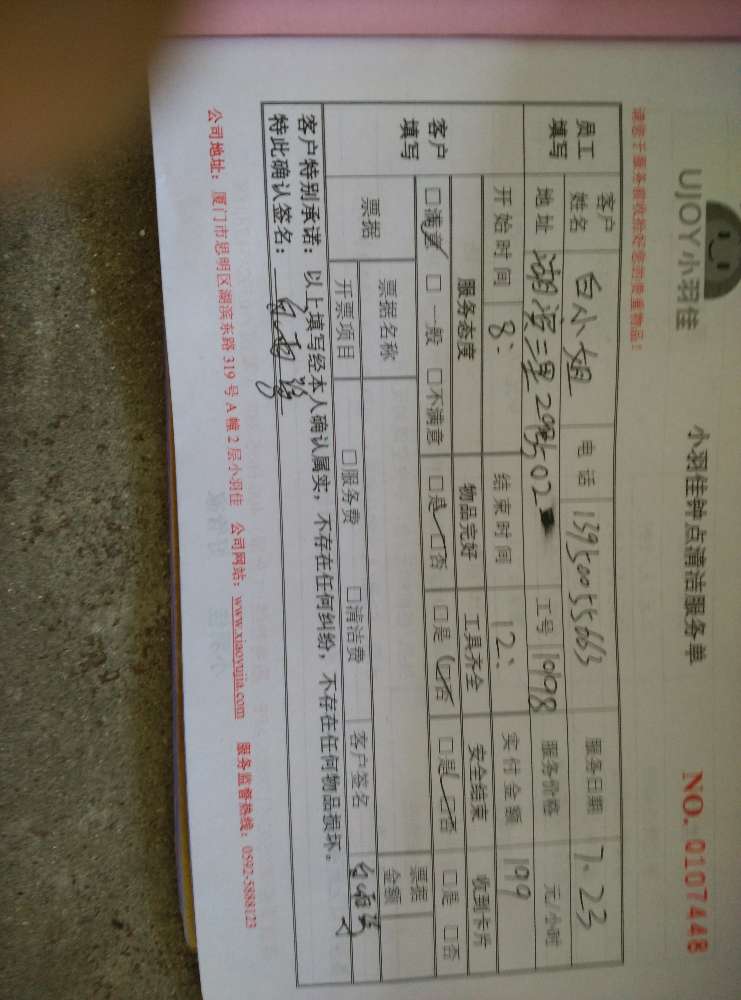 UJOY小羽佳
小羽佳钟点清洁服务单
NO. 0107448
请您于服务前收拾好您的贵重物品！
员工填写 客户姓名 白小姐 电话 13950055663 服务日期 7.23
地址 湖滨三里 工号 1998 服务价格 元/小时
开始时间 8: 结束时间 12: 实付金额 199
客户填写 服务态度 物品完好 工具齐全 安全结束 收到卡片
□满意 □一般 □不满意 □是 □否 □是 □否 □是 □否 □是 □否
票据 票据名称 客户签名 票据金额
开票项目 □服务费 □清洁费
客户特别承诺：以上填写经本人确认属实，不存在任何纠纷，不存在任何物品损坏。
特此确认签名：
公司地址：厦门市思明区湖滨东路 319 号 A 幢 2 层小羽佳 公司网站：www.xiaoyujia.com 服务监督热线：0592-5888123